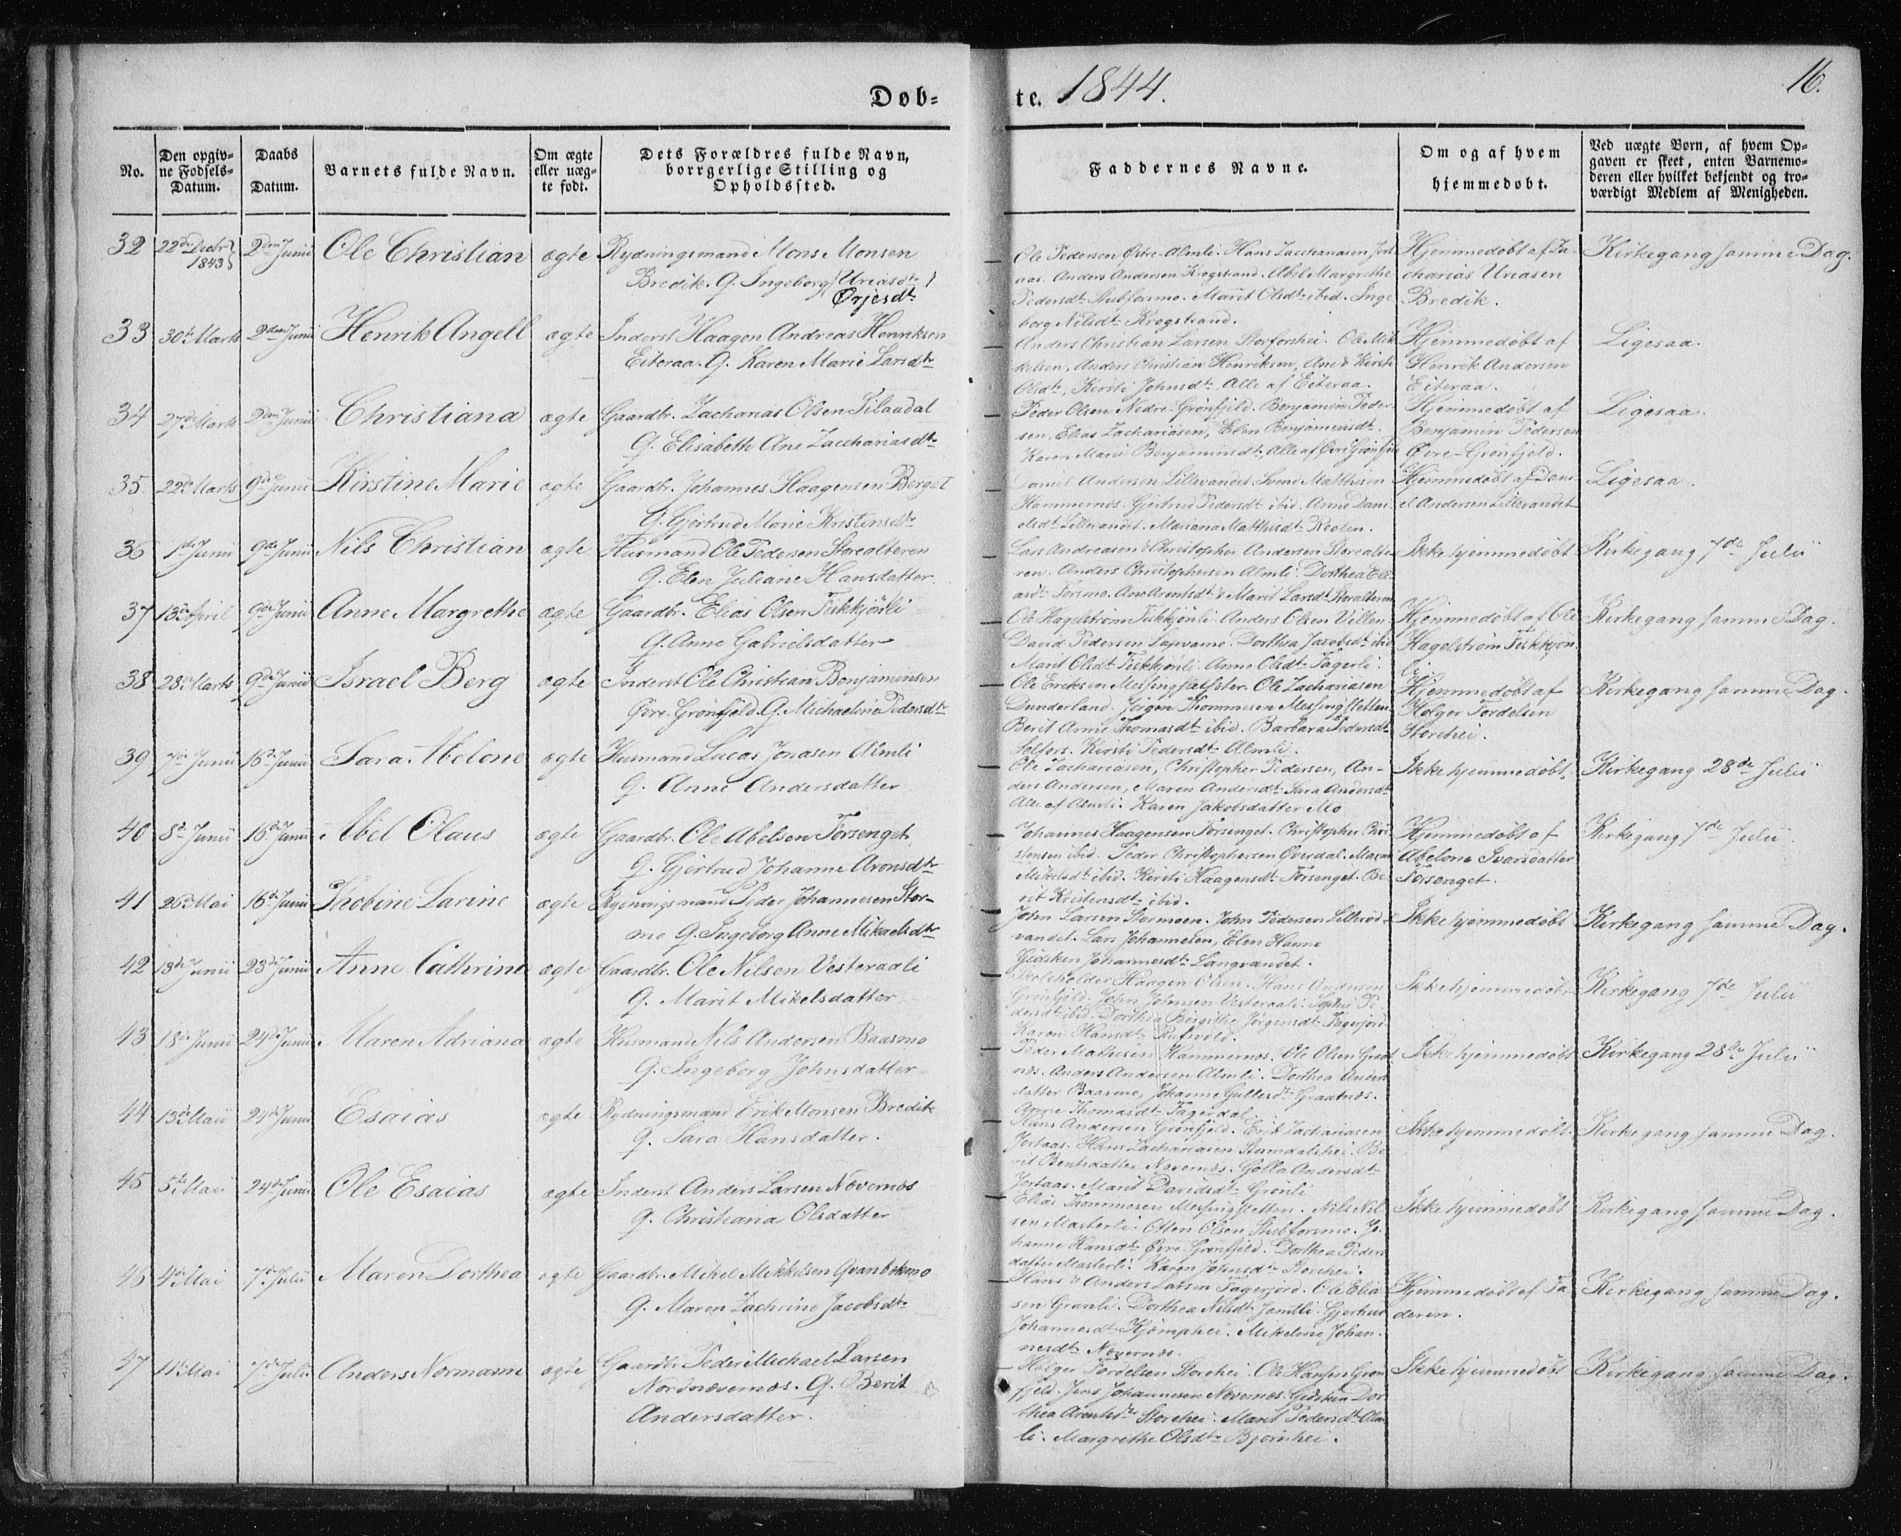 Døb=
te. 1844.
16.
No.
Den opgiv-
ne Fødsels-
Datum.
Daabs
Datum.
Barnets fulde Navn.
Om ægte
eller uæg-
te født.
Dets Forældres fulde Navn,
borgerlige Stilling og
Opholdssted.
Faddernes Navne.
Om og af hvem
hjemmedøbt.
Ved uægte Børn, af hvem Op-
gaven er skeet, enten Barnemo-
deren eller hvilket bekjendt og tro-
værdigt Medlem af Menigheden.
32 22de Decbr 1843 2den Junii Ole Christian ægte Rydningsmand Mons Monsen
Bredik. G. Ingeborg (Uriasdt)
Ørjesdt
Ole Pedersen Øvre Almli. Hans Zachariasen
aas. Anders Andersen Krogstrand. Abel Margrethe
Pedersdt Stubforsmo. Marit Olsdt ibid. Inge
borg Nilsdt Krogstrand.
Hjemmedøbt af Za-
charias Uriasen
Bredik.
Kirkegang samme Dag.
33 30te Marts 2den Junii Henrik Angell ægte Inderst Haagen Andreas Henriksen
Eiteraa. G. Karen Marie Larsdt
Anders Christian Larsen Storforshei. Ole Mik
kelsen, Anders Christian Henriksen, Ane & Kirsti
Olsdt, Kirsti Johnsdt, Alle af Eiteraa.
Hjemmedøbt af
Henrik Andersen
Eiteraa.
Ligesaa.
34 27de Marts 2den Junii Christiana ægte Gaardbr. Zacharias Olsen Pilaadal
G. Elisabeth Ane Zachariasdt
Peder Olsen Nedre-Grønfjeld. Benjamin Peder-
sen, Elias Zachariasen, Elen Benjaminsdt.
Karen Marie Benjaminsdt, Alle af Øvre Grønfjeld
Hjemmedøbt af
Benjamin Pedersen
Øvre-Grønfjeld.
Ligesaa.
35. 22de Marts 9de Junii Kirstine Marie ægte Gaardbr. Johannes Haagensen Berget
G. Gjertrud Marie Kristensdt
Daniel Andersen Lillevandet. Svend Mathisen
Hammernæs. Gjertrud Pedersdt ibid. Anne Dani-
elsdt Lillevandet. Mariana Mathisdt
Hjemmedøbt af Dani-
el Andersen Lillevandet
Ligesaa.
36 1ste Junii 9de Junii Nils Christian ægte Husmand Ole Pedersen Storealteren
G. Elen Juliane Hansdatter.
Lars Andreasen & Christopher Andersen Storealte-
ren. Anders Christophersen Almli. Dorthea Eli-
asdt Forsmo. Ane Arentsdt & Marit Larsdt Storalteren
Ikke hjemmedøbt
Kirkegang 7de Julii
37 13de April 9de Junii Anne Margrethe ægte Gaardbr. Elias Olsen Fiskkjønli
G. Anne Gabrielsdatter
Ole Hagelstrøm Fiskkjønli. Anders Olsen Villen
David Pedersen. Dorthea Jacobsdt ibid
Marit Olsdt Fiskkønli. Anne Olsdt Fagerli.
Hjemmedøbt af Ole
Hagelstrøm Fiskkjøn
li.
Kirkegang samme Dag.
38 28de Marts 9de Junii Israel Berg ægte Inderst Ole Christian Benjaminsen
Øvre Grønfjeld. G. Michaelina Pedersdt
Ole Eriksen Messingsletten. Ole Zachariasen
Dunderland. Jørgen Thommesen Messingsletten.
Berit Anne Thomasdt ibid. Barbara Pedersdt
Solfors. Kirsti Pedersdt Almli.
Hjemmedøbt af
Holger Fordelsen
Storhei.
Kirkegang samme Dag.
39 7de Junii 16de Junii Sara Abelone ægte Husmand Lucas Jonasen Almli
G. Anne Andersdatter
Ole Zachariasen, Christopher Pedersen, An-
ders Andersen, Maren Andersdt Sara Andersdt
Alle af Almli. Karen Jakobsdatter Mo
Ikke hjemmedøbt.
Kirkegang 28de Julii
40 8de Junii 16de Junii Abel Olaus ægte Gaardbr. Ole Abelsen Forsenget
G. Gjertrud Johanne Aronsdt
Johannes Haagensen Forsenget. Christopher Chri-
stensen ibid. Peder Christophersen Øverdal. Maren
Mikelsdt ibid. Kirsti Haagensdt Forsenget. Be-
rit Kristensdt ibid.
Hjemmedøbt af
Abelone Ivarsdatter
Forsenget.
Kirkegang 7de Julii
41 26de Mai 16de Junii Thobine Larine ægte Rydningsmand Peder Johannesen Stor-
mo G. Ingeborg Anne Mikaelsdt
John Larsen Stormoen. John Pedersen Lillerød-
vandet. Lars Johannesen, Elen Hanne
Gidsken Johannesdt Langvandet.
Ikke hjemmedøbt
Kirkegang samme Dag.
42 13de Junii 23de Junii Anne Cathrine ægte Gaardbr. Ole Nilsen Vesteraali
G. Marit Mikelsdatter
Skoleholder Haagen Olsen. Hans Andersen
Grønfjeld. John Johnsen Vesteraali. Sophie Pe-
dersdt ibid. Dorthea Birgitte Jørgensdt Fagerjord.
Karen Hansdt Rufsvold.
Ikke hjemmedøbt
Kirkegang 7de Julii
43 18de Junii 24de Junii Maren Adriana ægte Husmand Nils Andersen Baasmo
G. Ingeborg Johnsdatter
Peder Mathisen Hammernæs. Ole Olsen Graat
næs. Anders Andersen Almli. Dorthea Anders
datter Baasmo, Johanne Gullesdt Graatnæs.
Anne Thomasdt Fagerdal.
Ikke hjemmedøbt
Kirkegang 28de Julii
44 13de Maii 24de Junii Esaias ægte Rydningsmand Erik Monsen Bredik
G. Sara Hansdatter.
Hans Andersen Grønfjeld. Erik Zachariasen
Jortaas. Hans Zachariasen Stormdalshei. Be-
rit Bentsdatter Nævernæs. Golla Andersdt
Jortaas. Marit Davidsdt Grønli
Ikke hjemmedøbt.
Kirkegang samme Dag.
45 5te Maii 24de Junii Ole Esaias ægte Inderst Anders Larsen Nævernæs
G. Christiana Olsdatter
Elias Thommesen Messingsletten. Nils Nil-
sen Masterli. Otten Olsen Stubforsmo. Jo-
hanne Hansdt Øvre-Grønfjeld. Dorthea Peders
datter Masterli. Karen Johnsdt Storhei.
Ikke hjemmedøbt
Kirkegang samme Dag.
46 4de Mai 7de Julii Maren Dorthea ægte Gaardbr. Mikel Mikkelsen Qvanbæksmo
G. Maren Zachrine Jacobsdt
Hans & Anders Larsen Fagerjord. Ole Elia
sen Granli. Dorthea Nilsdt Jamtli. Gjertrud
Johannesdt Kjømphei. Mikeline Johan-
nesdt Nævernæs.
Hjemmedøbt af Fa
deren.
Kirkegang samme Dag.
47 11te Mai 7de Julii Anders Normann ægte Gaardbr Peder Michael Larsen
Nordnævernæs. G. Berit
Andersdatter.
Holger Fordelsen Storhei. Ole Hansen Grøn
fjeld. Jens Johannesen Nævernæs. Gidsken Dor
thea Arentsdt Storhei. Marit Pedersdt Alm
li. Margrethe Olsdt Bjørnhei.
Ikke hjemmedøbt
Kirkegang samme Dag.